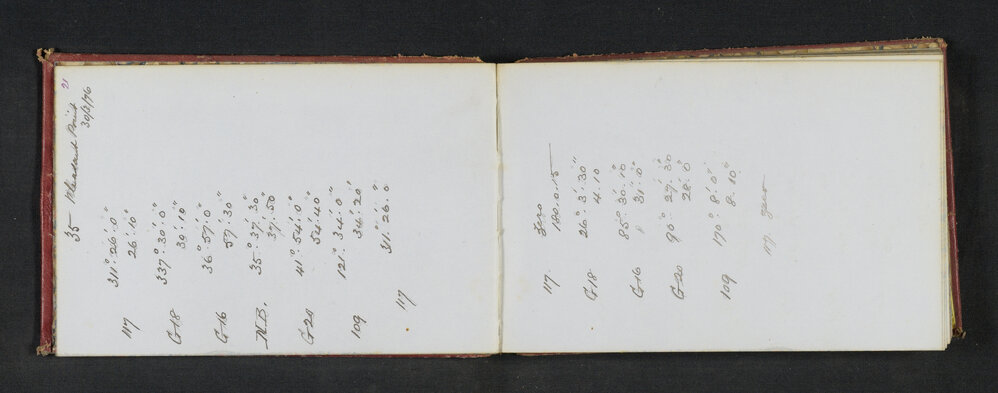 21
35 Pleasant Point
30/3/76
117 311°: 26': 0"
26': 10"
G18 337°: 30': 0"
30': 10"
G16 36°: 57': 0"
57': 30"
N.B. 35°: 37': 30"
37': 50"
G20 41°: 54': 0"
54': 40"
109 121°: 34': 0"
34': 20"
117 311°: 26': 0"
117. Zero
180.0.15"
G18 26°: 3': 30"
4.10
G16 85°: 30': 10"
31': 0"
G20 90°: 27': 30"
28': 0"
109 170°: 8': 0"
8.10"
117 zero